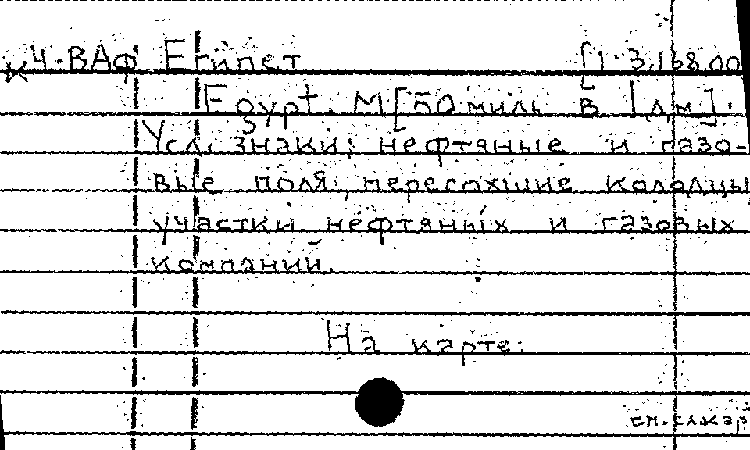 4-ВАФ Египет [1:3.168.00
Egypt. М[50 миль в 1 дм].
Усл. знаки: нефтяные и газо-
вые поля, пересохшие колодцы
участки нефтяных и газовых
компаний.
На карте:
см. сл. кар